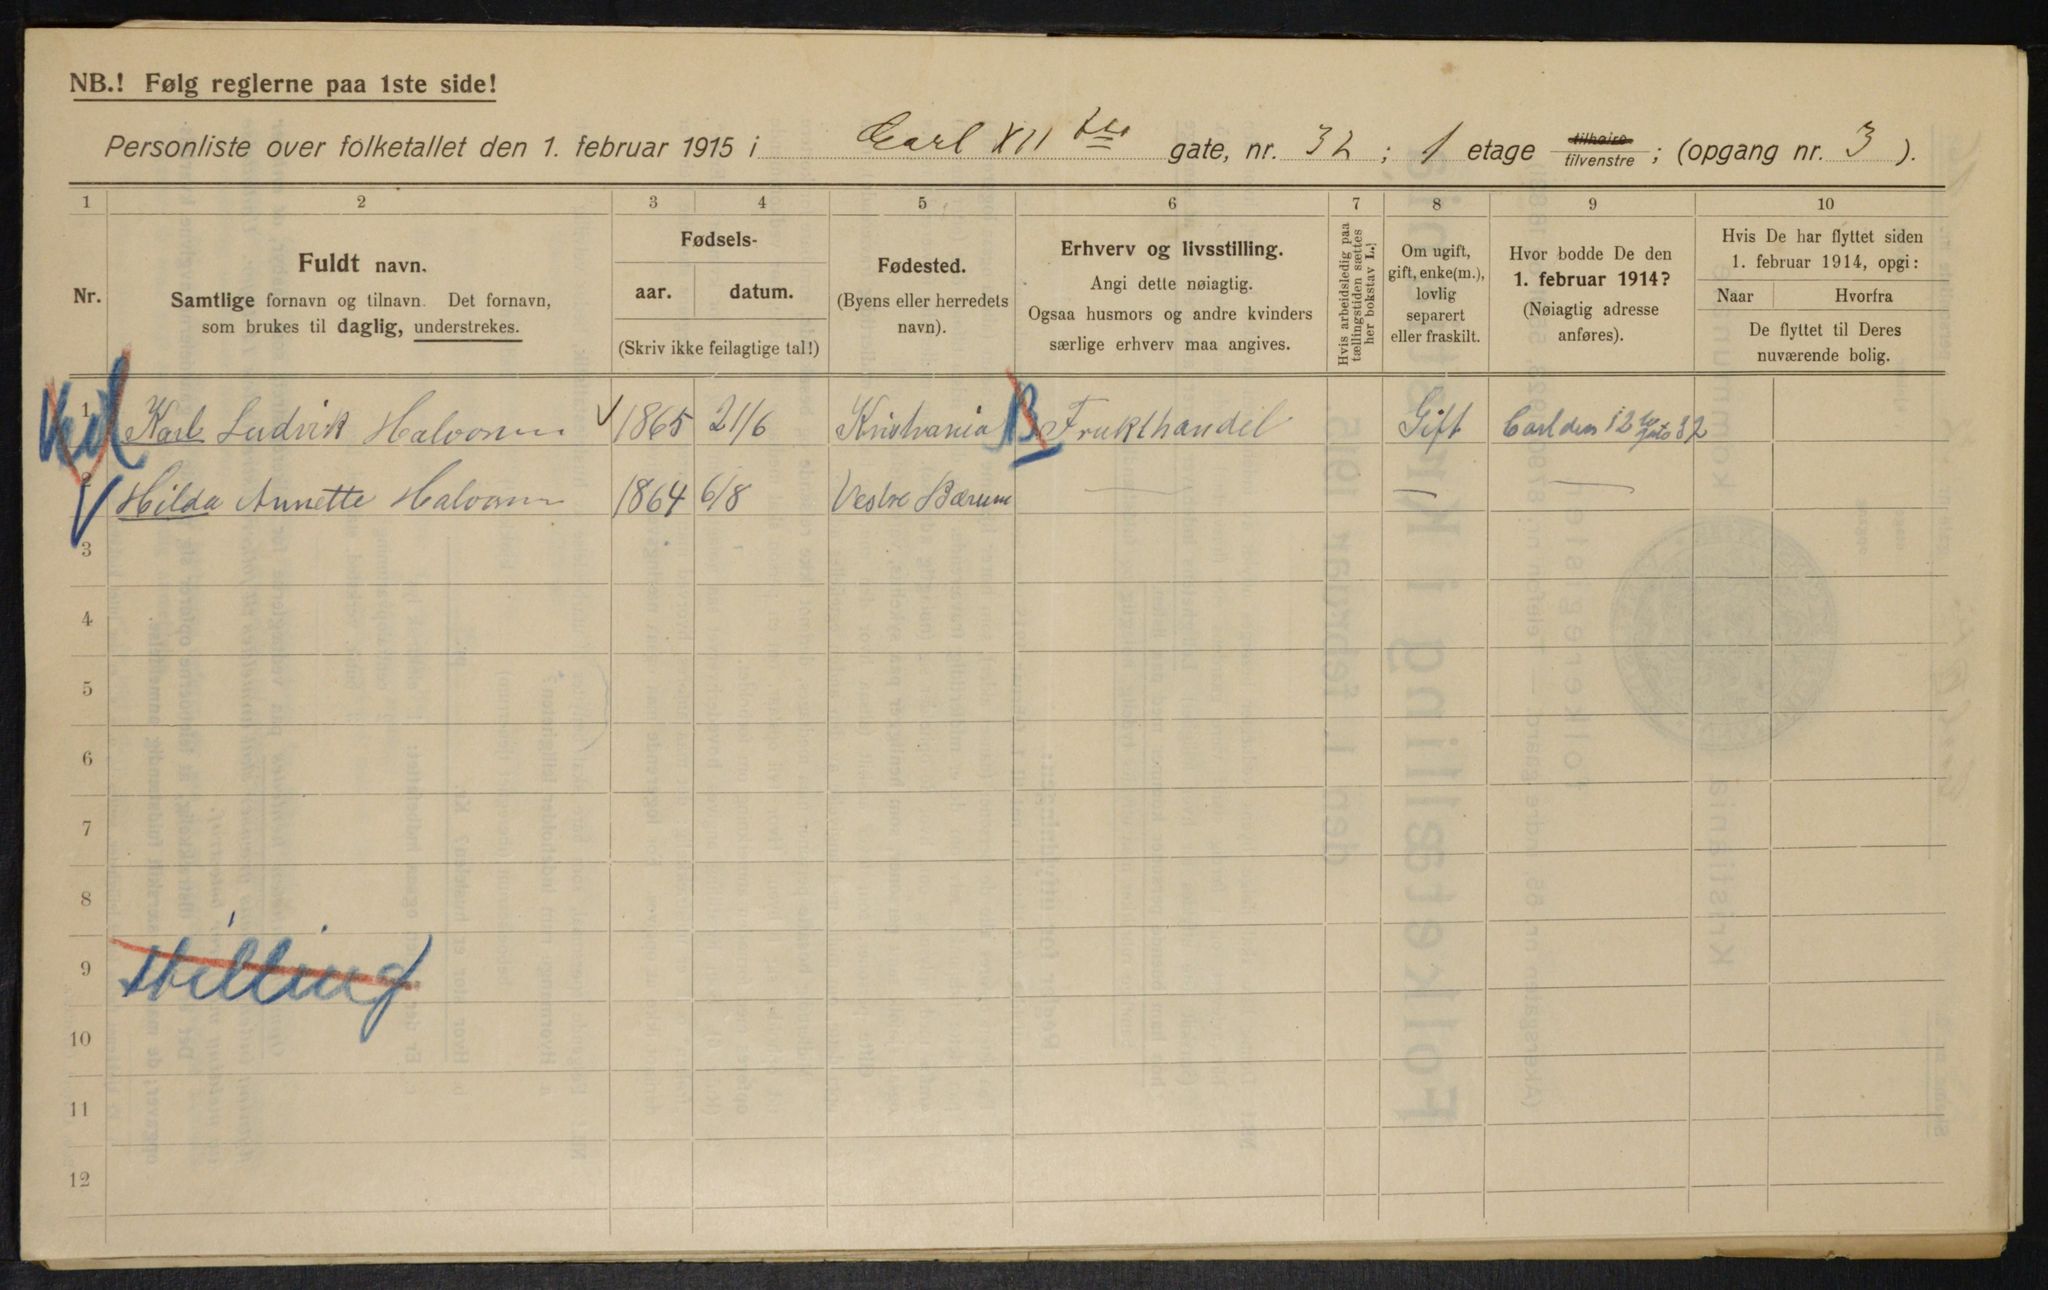 NB.! Følg reglerne paa 1ste side!
Personliste over folketallet den 1. februar 1915 i Carl XII tes gate, nr. 32 ; 1 etage tilhøire tilvenstre ; (opgang nr. 3 ).
1 2 3 4 5 6 7 8 9 10
Nr.
Fuldt navn.
Samtlige fornavn og tilnavn. Det fornavn,
som brukes til daglig, understrekes.
Fødsels-
aar. datum.
(Skriv ikke feilagtige tal!)
Fødested.
(Byens eller herredets
navn).
Erhverv og livsstilling.
Angi dette nøiagtig.
Ogsaa husmors og andre kvinders
særlige erhverv maa angives.
Hvis arbeidsledig paa
tællingstiden sættes
her bokstav L.
Om ugift,
gift, enke(m.),
lovlig
separert
eller fraskilt.
Hvor bodde De den
1. februar 1914?
(Nøiagtig adresse
anføres).
Hvis De har flyttet siden
1. februar 1914, opgi:
Naar Hvorfra
De flyttet til Deres
nuværende bolig.
1 Karl Ludvik Halvorsen 1865 21/6 Kristiania B Frukthandel Gift Carl den 12te gate 32
2 Hilda Annette Halvorsen 1864 6/8 Vestre Bærum — — —
3
4
5
6
7
8
9 stilling
10
11
12